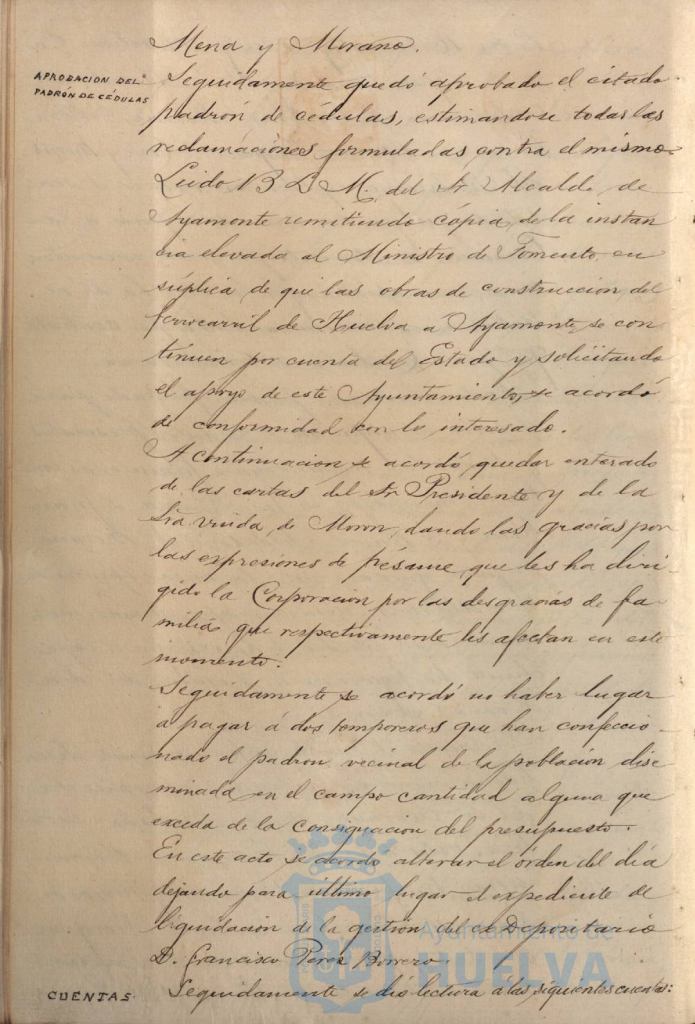 Mena y Morano.
APROBACION DEL
PADRÓN DE CÉDULAS
Seguidamente quedó aprobado el citado
padrón de cédulas, estimandose todas las
reclamaciones formuladas contra el mismo.
Leido B L M. del Sr Alcalde de
Ayamonte remitiendo cópia de la instan
cia elevada al Ministro de Fomento, en
súplica de que las obras de construccion del
ferrocarril de Huelva á Ayamonte, se con
tinuen por cuenta del Estado y solicitando
el apoyo de este Ayuntamiento, se acordó
de conformidad con lo interesado.
A continuacion se acordó quedar enterado
de las cartas del Sr Presidente y de la
Sra viuda de Moron, dando las gracias por
las expresiones de pésame que les ha diri
gido la Corporacion por las desgracias de fa
milia que respectivamente les afectan en este
momento.
Seguidamente se acordó no haber lugar
a pagar á dos temporeros que han confeccio
nado el padron vecinal de la población dise
minada en el campo cantidad alguna que
exceda de la consignacion del presupuesto.
En este acto se acordó alterar el órden del día
dejando para último lugar el expediente de
liquidación de la gestión del ex Depositario
D. Francisco Perez Borrero.
CUENTAS
Seguidamente se dió lectura a las siguientes cuentas:
Ayuntamiento de
HUELVA